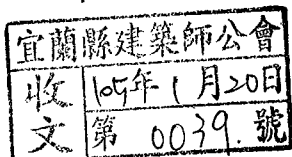 宜蘭縣建築師公會
收文
105年1月20日
第 0039. 號